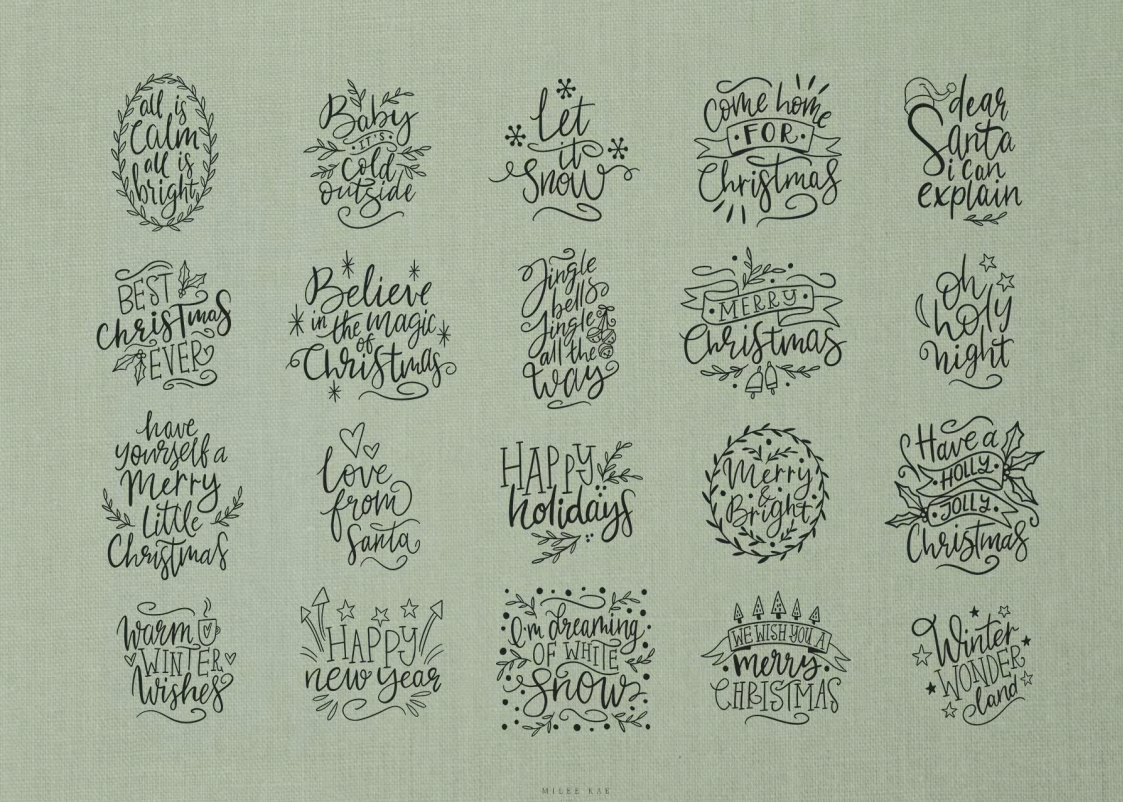 all is
Calm
all is
bright
Baby
IT'S
cold
outside
Let
it
Snow
Come home
FOR
Christmas
dear
Santa
i can
explain
BEST
Christmas
EVER
Believe
in the magic
of
Christmas
Jingle
bells
Jingle
all the
way
MERRY
Christmas
oh
holy
night
have
yourself a
Merry
little
Christmas
Love
from
Santa
HAPPY
holidays
Merry
&
Bright
Have a
HOLLY
JOLLY
Christmas
Warm
WINTER
Wishes
HAPPY
new year
I'm dreaming
OF WHITE
Snow
WE WISH YOU A
merry
CHRISTMAS
Winter
WONDER
land
MILEE KAE